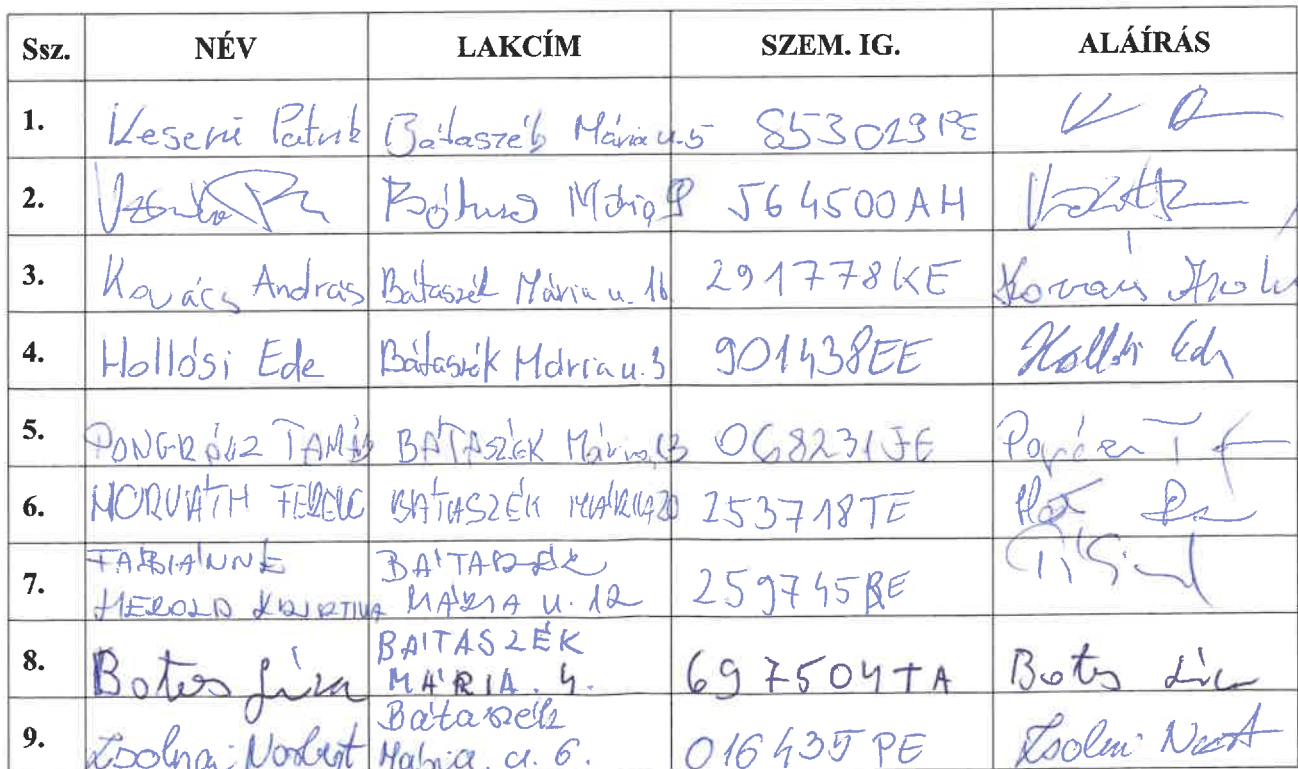 Ssz. NÉV LAKCÍM SZEM. IG. ALÁÍRÁS
1. Keserű Patrik Bátaszék Mária u. 5 853029PE
2. Mária 9 564500AH
3. Kovács András Bátaszék Mária u. 16 291778KE Kovács
4. Hollósi Ede Bátaszék Mária u. 3 901438EE Hollósi Ede
5. PONGRÁCZ TAMÁS BÁTASZÉK Mária 13 068231JE
6. HORVÁTH FERENC BÁTASZÉK MÁRIA 20 253718TE
7. FÁBIÁNNÉ
HEROLD KRISZTINA
BÁTASZÉK
MÁRIA U. 12
259745BE
8. Botos Géza
BÁTASZÉK
MÁRIA. 4.
697504TA Botos
9. Zsolnai Norbert
Bátaszék
Mária. u. 6.
016435PE Zsolnai